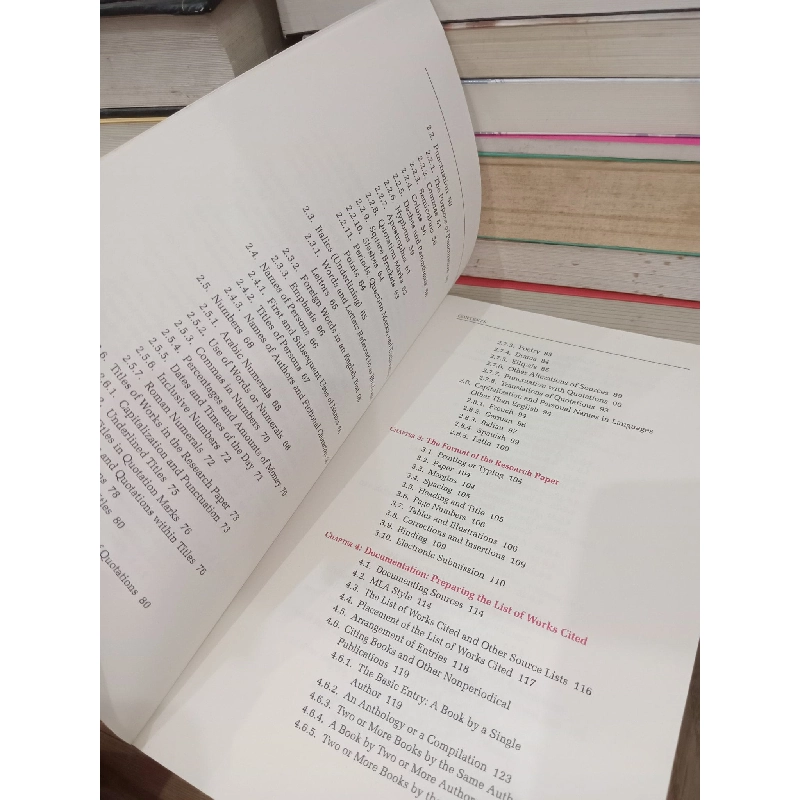 2.2. Punctuation
2.2.1. The Purpose of Punctuation
2.2.2. Commas
2.2.3. Semicolons
2.2.4. Colons
2.2.5. Dashes and Parentheses
2.2.6. Hyphens
2.2.7. Apostrophes
2.2.8. Quotation Marks
2.2.9. Square Brackets
2.2.10. Slashes 64
2.2.11. Periods, Question Marks, and
Points 64
2.3. Italics (Underlining) 65
2.3.1. Words and Letters Referred to as
Letters 65
2.3.2. Foreign Words in an English Text
2.3.3. Emphasis 66
2.4. Names of Persons 66
2.4.1. First and Subsequent Uses of Names
2.4.2. Titles of Persons 67
2.4.3. Names of Authors and Fictional Characters
2.5. Numbers 68
2.5.1. Arabic Numerals 68
2.5.2. Use of Words or Numerals 68
2.5.3. Commas in Numbers 70
2.5.4. Percentages and Amounts of Money 70
2.5.5. Dates and Times of the Day 71
2.5.6. Inclusive Numbers 72
2.5.7. Roman Numerals 72
2.6. Titles of Works in the Research Paper 73
2.6.1. Capitalization and Punctuation 73
Underlined Titles 75
Titles in Quotation Marks 76
and Quotations within Titles 76
78
80
of Quotations 80
CONTENTS
2.7.3. Poetry
2.7.4. Drama
2.7.5. Ellipsis
2.7.6. Other Alterations of Sources
2.7.7. Punctuation with Quotations
2.7.8. Translations of Quotations 93
2.8. Capitalization and Personal Names in Languages
Other Than English 94
2.8.1. French 94
2.8.2. German 96
2.8.3. Italian 97
2.8.4. Spanish 99
2.8.5. Latin 100
CHAPTER 3: The Format of the Research Paper
3.1. Printing or Typing
3.2. Paper 104
3.3. Margins 104
3.4. Spacing 105
3.5. Heading and Title 105
3.6. Page Numbers 106
3.7. Tables and Illustrations
3.8. Corrections and Insertions 109
3.9. Binding 109
3.10. Electronic Submission 110
CHAPTER 4: Documentation: Preparing the List of Works Cited
4.1. Documenting Sources 114
4.2. MLA Style 114
4.3. The List of Works Cited and Other Source Lists 116
4.4. Placement of the List of Works Cited 117
4.5. Arrangement of Entries 118
4.6. Citing Books and Other Nonperiodical
Publications 119
4.6.1. The Basic Entry: A Book by a Single
Author 119
4.6.2. An Anthology or a Compilation 123
4.6.3. Two or More Books by the Same Auth
4.6.4. A Book by Two or More Author
4.6.5. Two or More Books by the